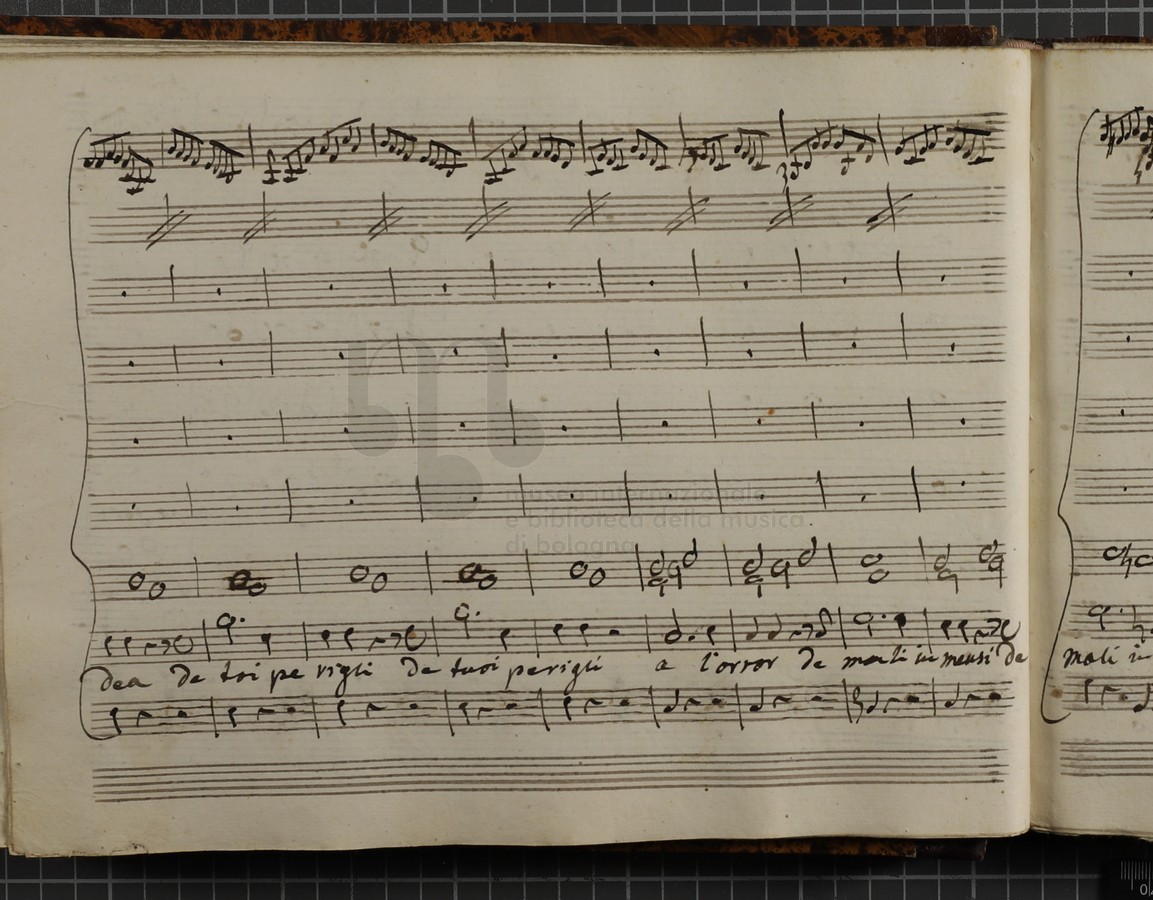 museo internazionale
e biblioteca della musica
di bologna
dea de toi pe rigli de tuoi perigli a l'orror de mali immensi de
mali